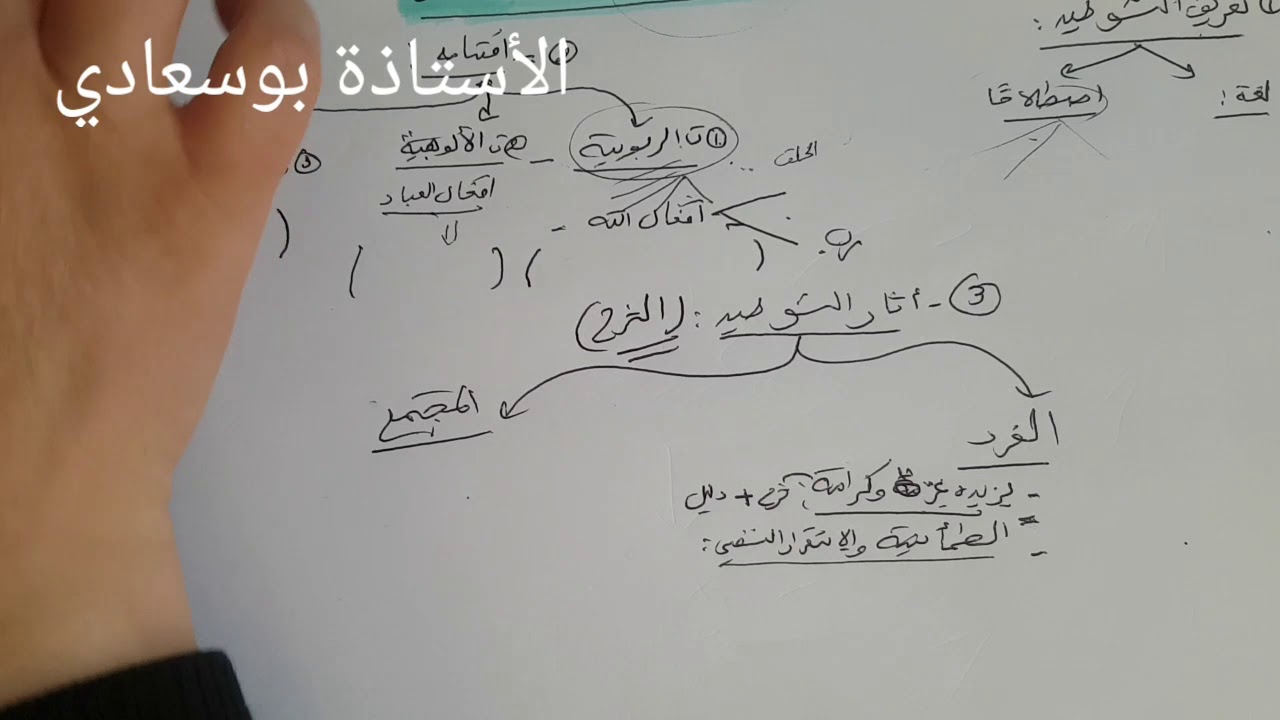 تعريف التوحيد :
لغة :
اصطلاحًا
② - أقسامه
الأستاذة بوسعادي
① ت الربوبية
ت الألوهية -
③
الخلق
أفعال الله -
أفعال العباد
( )
( )
(
③ - آثار التوحيد : (الشرح)
الفرد
المجتمع
- يزيده عزة وكرامة : شرح + دليل
- الطمأنينة والاستقرار النفسي :
-